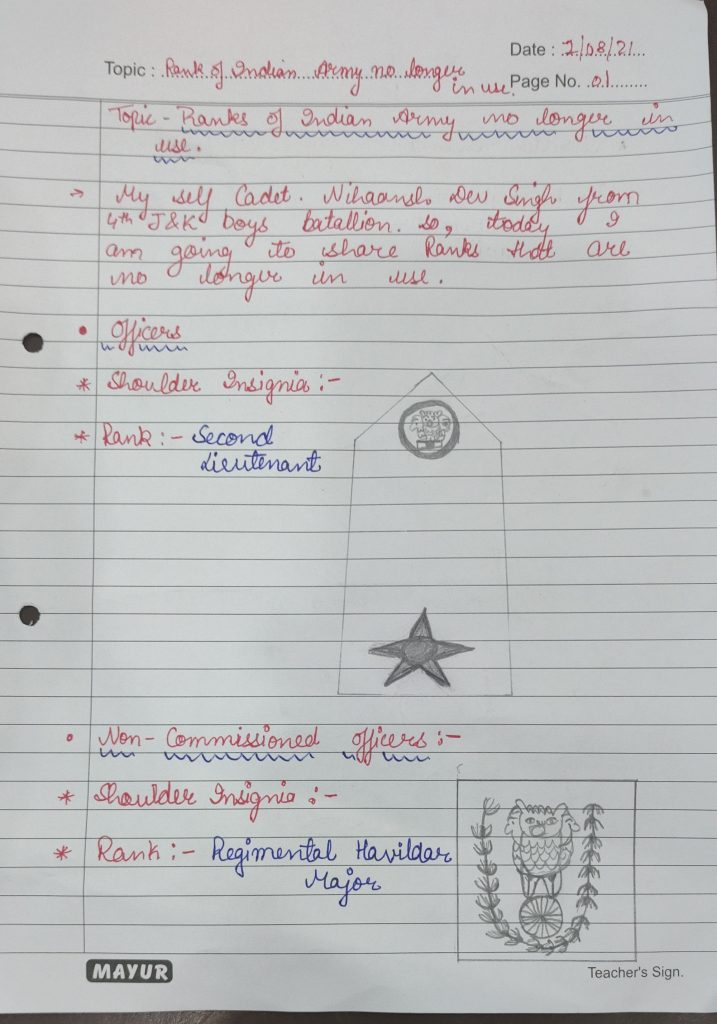 Date : 2/08/21
Topic : Rank of Indian Army no longer in use.
Page No. 01
Topic - Ranks of Indian Army no longer in
use.
→ My self Cadet. Nihaansh Dev Singh from
4th J&K boys batallion. so, today I
am going to share Ranks that are
no longer in use.
• Officers
* Shoulder Insignia :-
* Rank :- Second
Lieutenant
• Non- Commissioned officers :-
* Shoulder Insignia :-
* Rank :- Regimental Havildar
Major
MAYUR
Teacher's Sign.